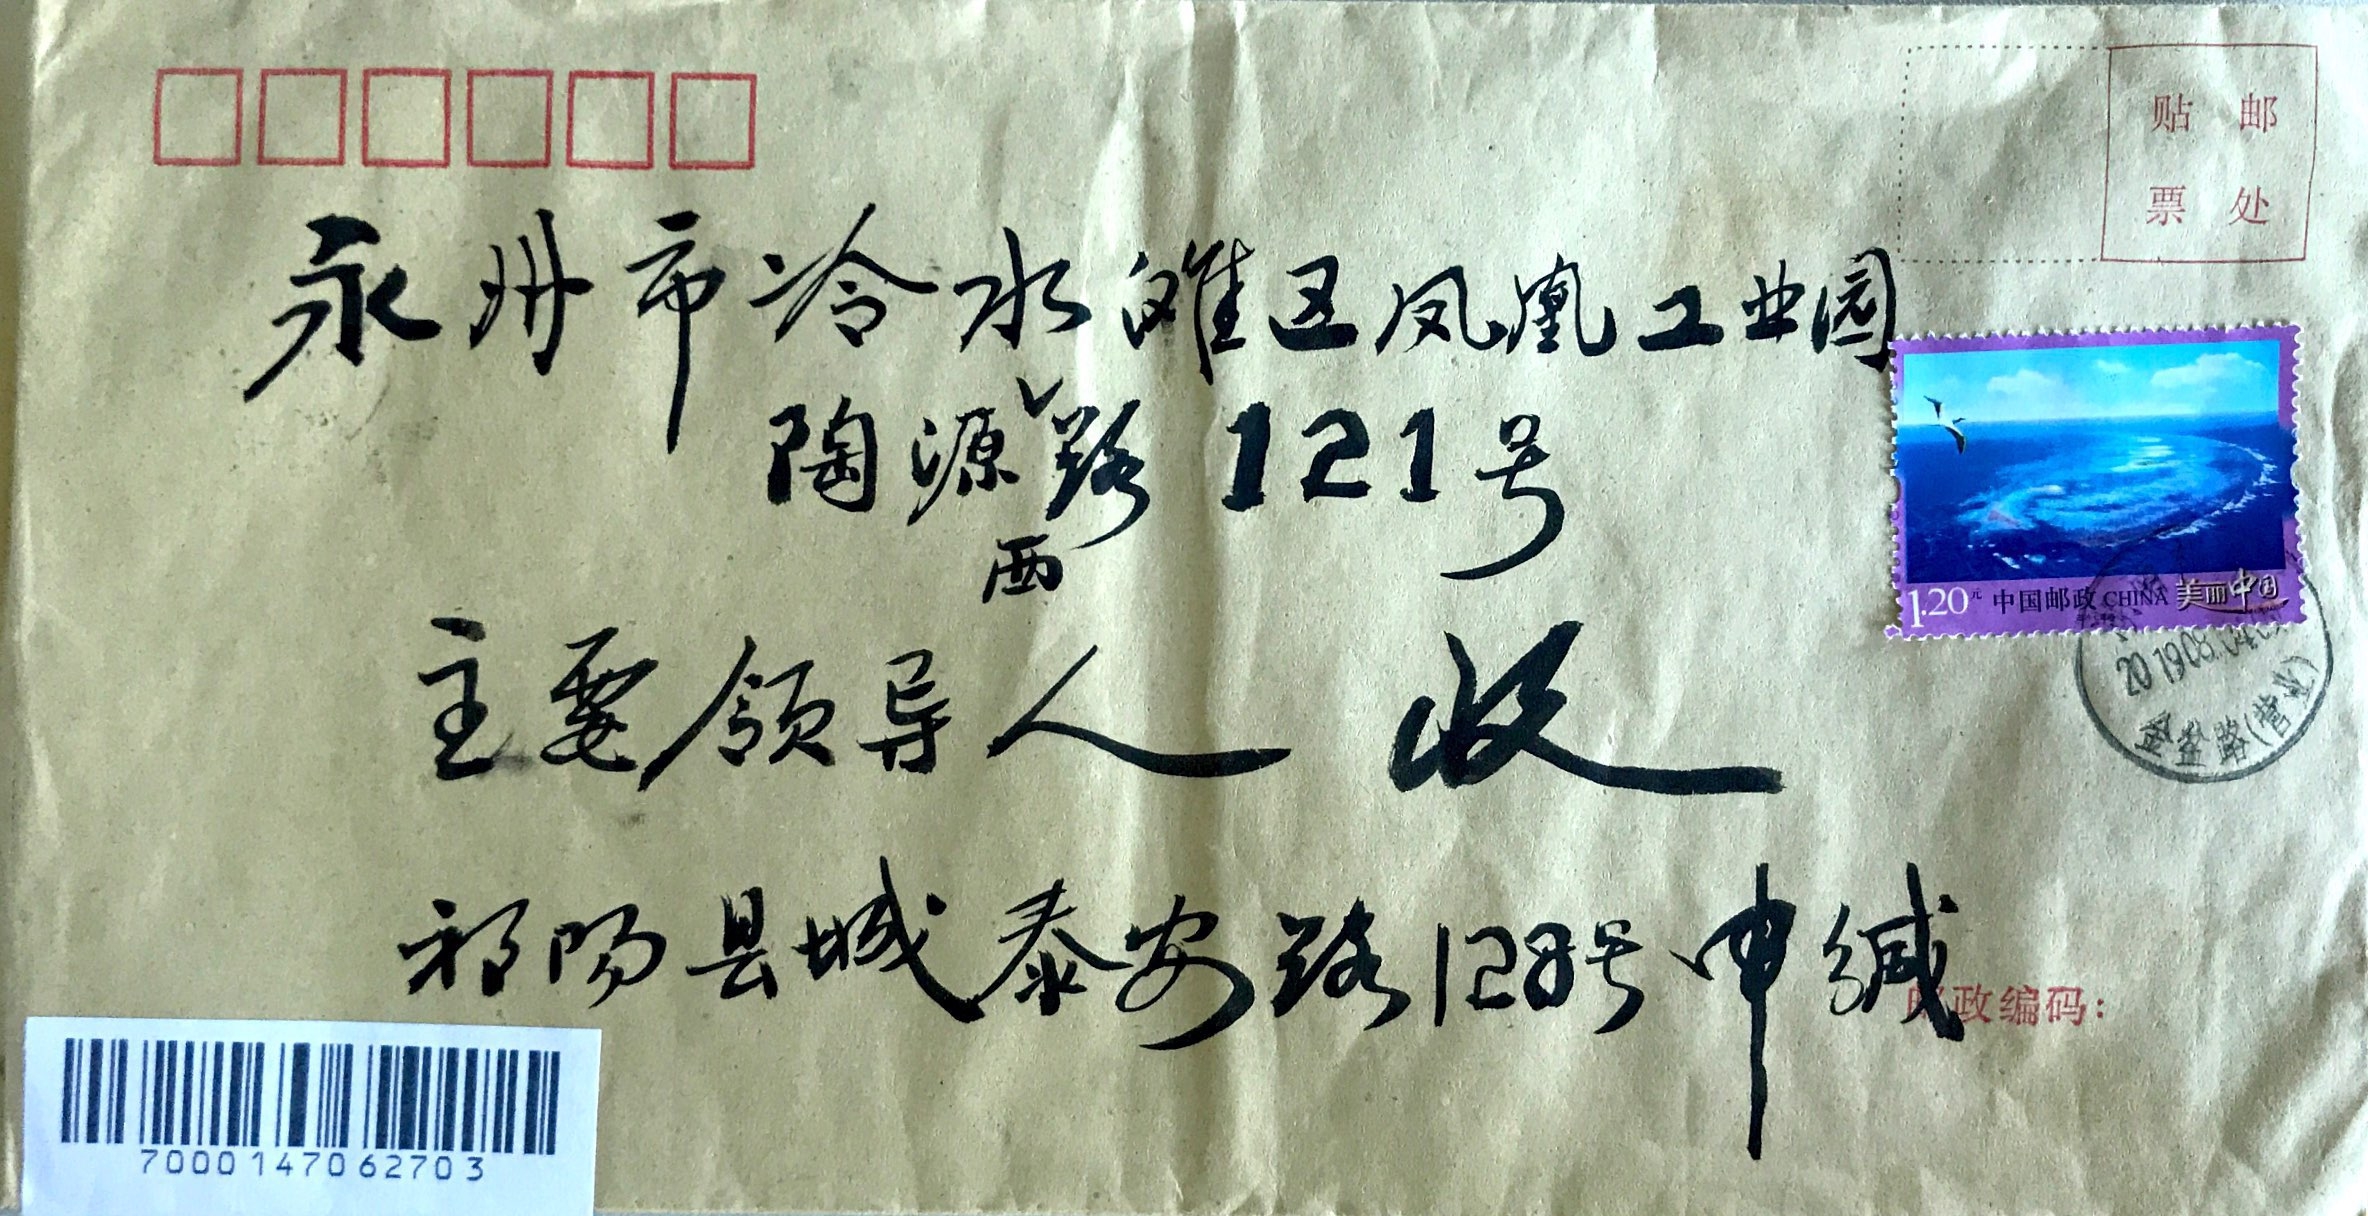 贴 邮
票 处
永州市冷水滩区凤凰工业园
陶源路121号
西
主要领导人 收
1.20元 中国邮政 CHINA 美丽中国
2019.08.04
金盆路(营
祁阳县城泰安路128号申缄
邮政编码:
7000147062703